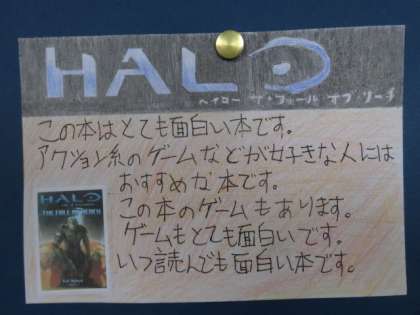 HALO
ヘイロー ザ・フォール オブ リーチ
この本はとても面白い本です。
アクション系のゲームなどが好きな人には
おすすめな本です。
この本のゲームもあります。
ゲームもとても面白いです。
いつ読んでも面白い本です。
HALO
THE FALL OF REACH